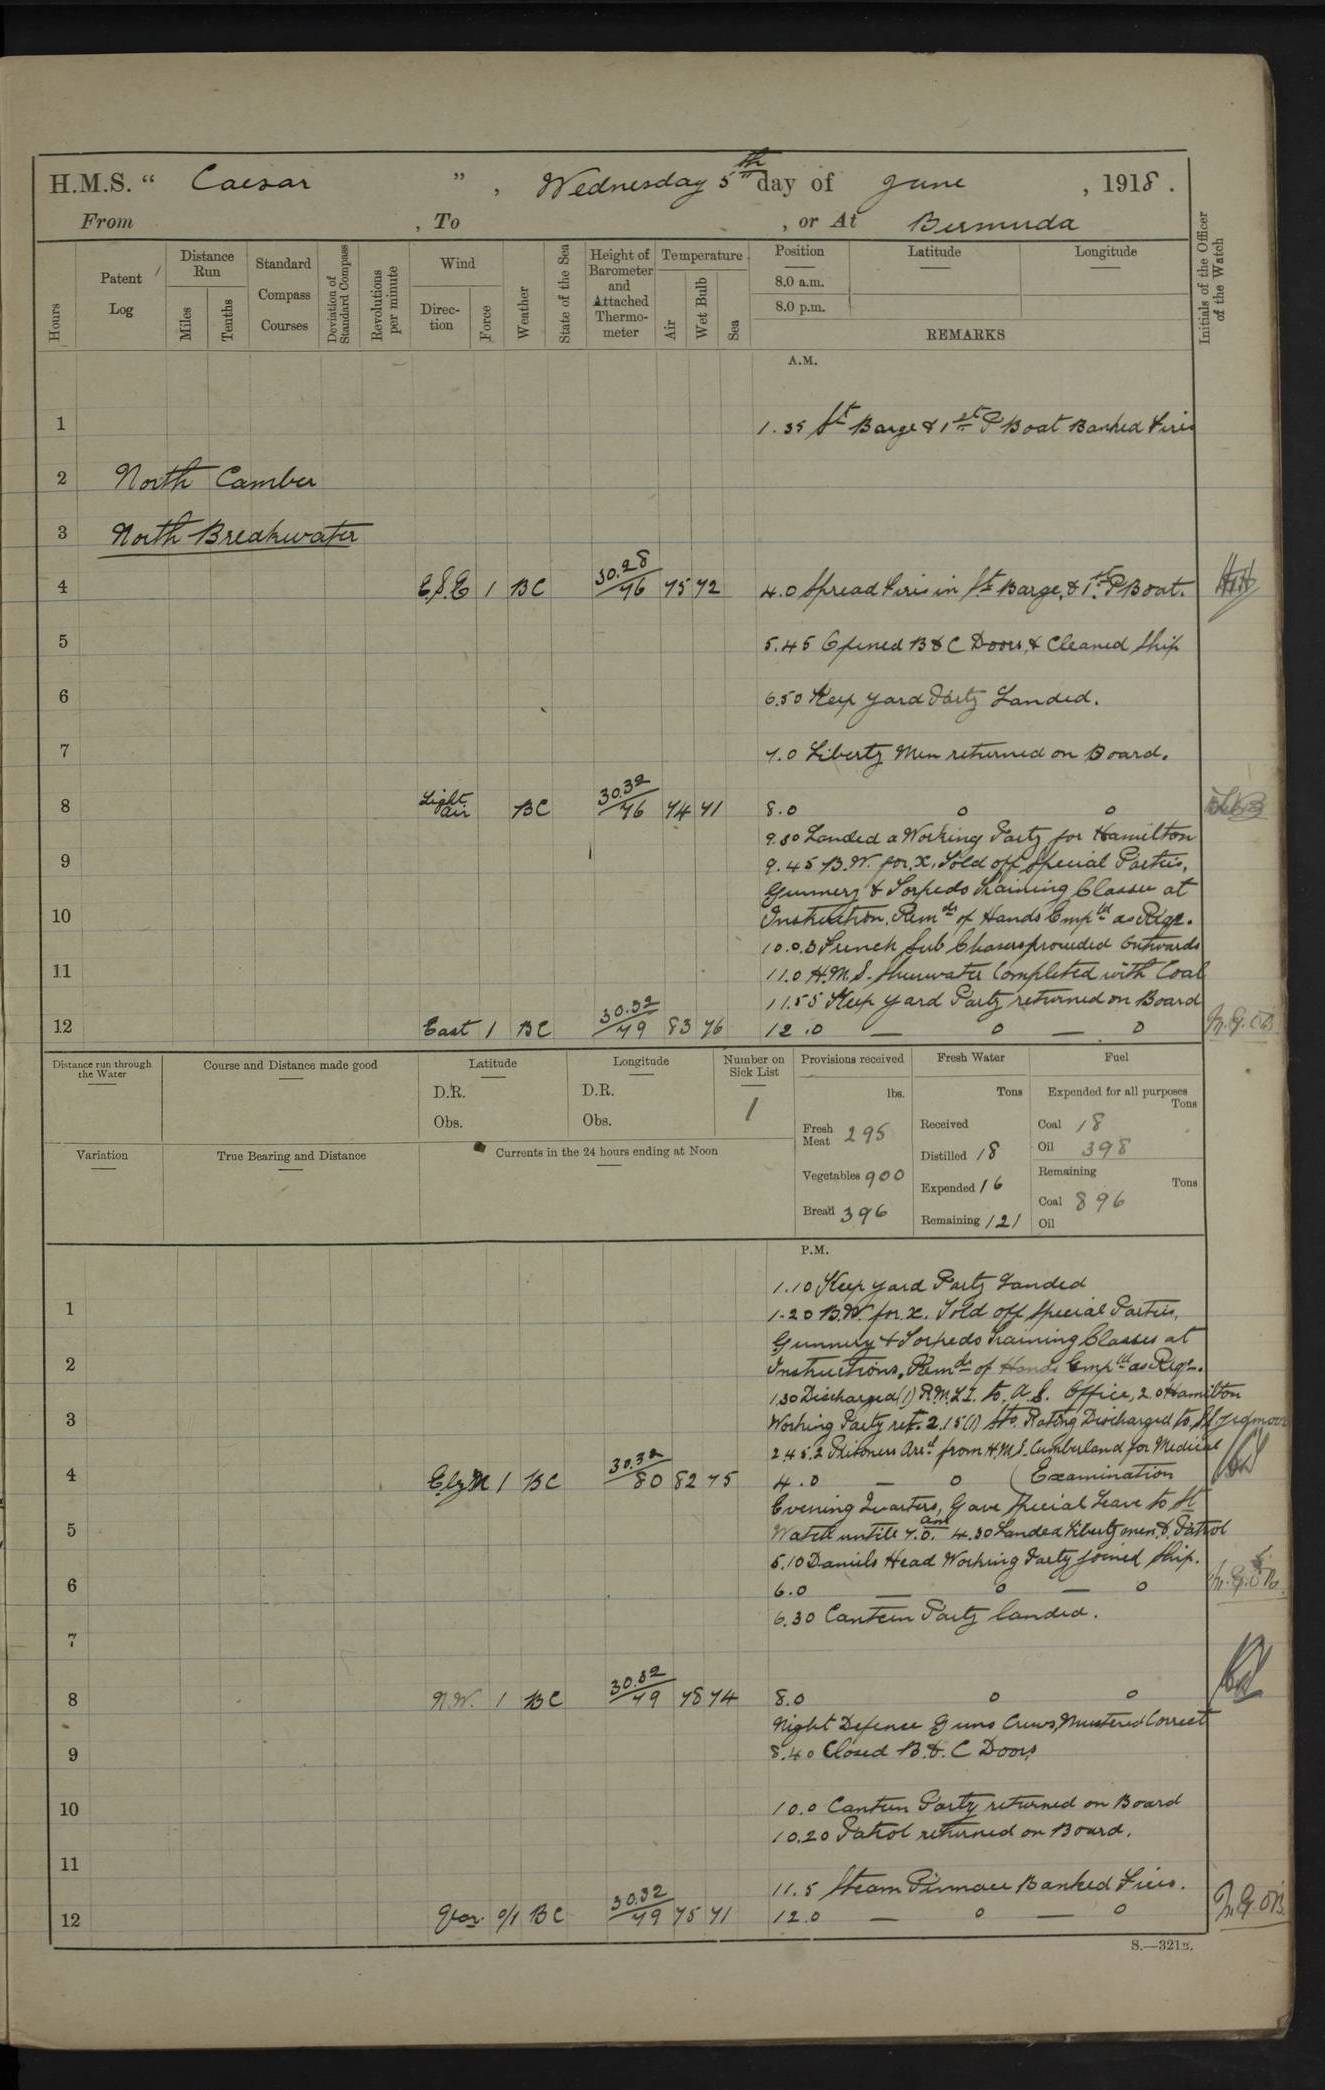 H.M.S. “ Caesar ” , Wednesday 5th day of June , 1918 .
From , To , or At Bermuda
Hours
Patent Log
Distance Run
Miles
Tenths
Standard Compass Courses
Deviation of Standard Compass
Revolutions per minute
Wind
Direction
Force
Weather
State of the Sea
Height of Barometer and Attached Thermometer
Temperature
Air
Wet Bulb
Sea
Position
8.0 a.m.
8.0 p.m.
Latitude
Longitude
REMARKS
Initials of the Officer of the Watch
A.M.
1 1.35 St Barge & 1st P Boat Banked Fires
2 North Camber
3 North Breakwater
4 E.S.E 1 BC 30.28/76 75 72 4.0 Spread Fires in St Barge, & 1st P Boat.
5 5.45 Opened B & C Doors, & Cleaned Ship
6 6.50 Keep Yard Party Landed.
7 7.0 Liberty Men returned on Board.
8 Light air BC 30.32/76 74 71 8.0 o o
9.30 Landed a Working Party for Hamilton
9 9.45 B.W. for x. Told off Special Parties,
Gunnery & Torpedo Training Classes at
10 Instruction. Remdr of Hands Emptd as Reqr.
10.0.3 French Sub Chasers proceeded Outwards
11 11.0 H.M.S. Shearwater Completed with Coal
11.55 Keep Yard Party returned on Board
12 East 1 BC 30.32/79 83 76 12.0 — o — o
Distance run through the Water
Course and Distance made good
Latitude
D.R.
Obs.
Longitude
D.R.
Obs.
Number on Sick List
1
Provisions received
lbs.
Fresh Meat 295
Vegetables 900
Bread 396
Fresh Water
Tons
Received
Distilled 18
Expended 16
Remaining 121
Fuel
Expended for all purposes
Tons
Coal 18
Oil 398
Remaining
Tons
Coal 896
Oil
Variation
True Bearing and Distance
Currents in the 24 hours ending at Noon
P.M.
1.10 Keep Yard Party Landed
1 1.20 B.W. for x. Told off Special Parties,
Gunnery & Torpedo Training Classes at
2 Instructions. Remdr of Hands Emptd as Reqr.
1.30 Discharged (1) R.M.L.I. to A.S. Office, 2.0 Hamilton
3 Working Party ret. 2.15 (1) Sto. Rating Discharged to
2.45. 2 Prisoners Arrd from H.M.S. Cumberland for Medical
4 E by N 1 BC 30.32/80 82 75 4.0 — o (Examination
Evening Quarters, Gave Special Leave to St
5 Watch untill 7.0. am 4.30 Landed Liberty men, & Patrol
5.10 Daniels Head Working Party joined Ship.
6 6.0 — o — o
6.30 Canteen Party Landed.
7
8 N.W. 1 BC 30.32/79 78 74 8.0 o o
Night Defence Guns Crews, Mustered Correct
9 8.40 Closed B. & C Doors
10 10.0 Canteen Party returned on Board
10.20 Patrol returned on Board.
11
11.5 Steam Pinnace Banked Fires.
12 Var. 0/1 BC 30.32/79 75 71 12.0 — o — o
S.—321B.